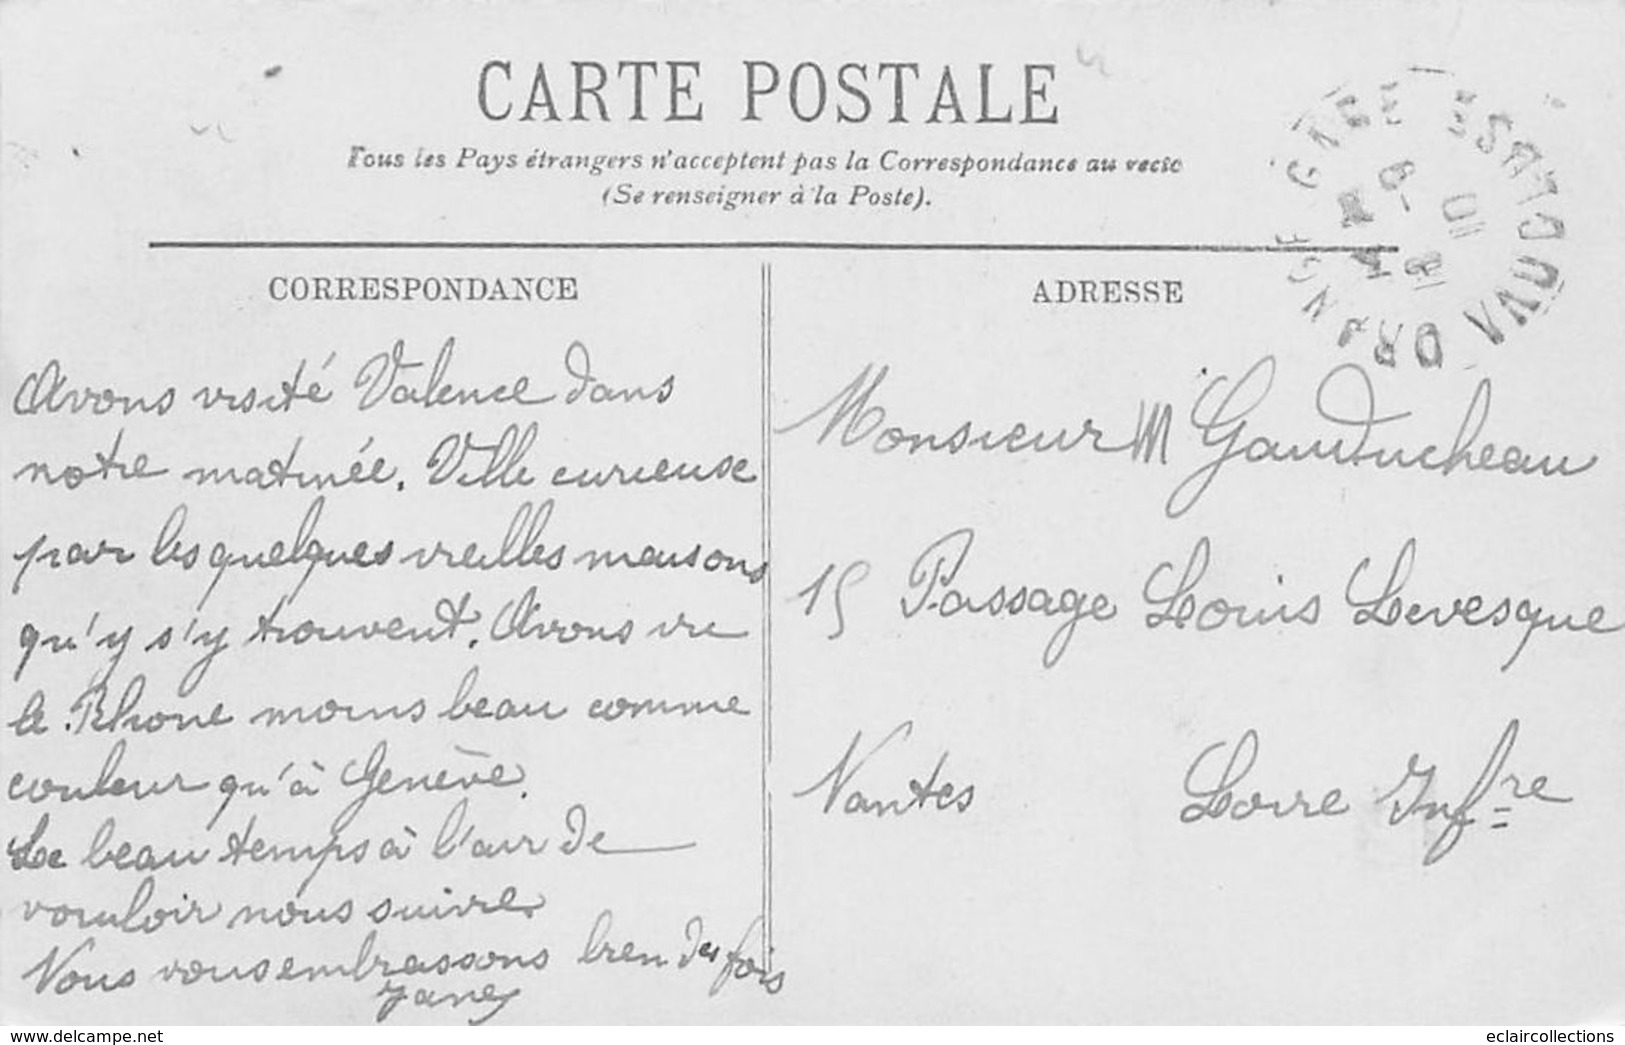 CARTE POSTALE
Tous les Pays étrangers n'acceptent pas la Correspondance au recto
(Se renseigner à la Poste).
CORRESPONDANCE
Avons visité Valence dans
notre matinée. Ville curieuse
par les quelques vieilles maisons
qu'y s'y trouvent. Avons vu
le Rhone moins beau comme
couleur qu'à Genève.
Le beau temps à l'air de
vouloir nous suivre.
Nous vous embrassons bien des fois
ADRESSE
Monsieur M Gauducheau
15 Passage Louis Levesque
Nantes Loire Infre
ORANGE GARE VAUCLUSE
delcampe.net
eclaircollections